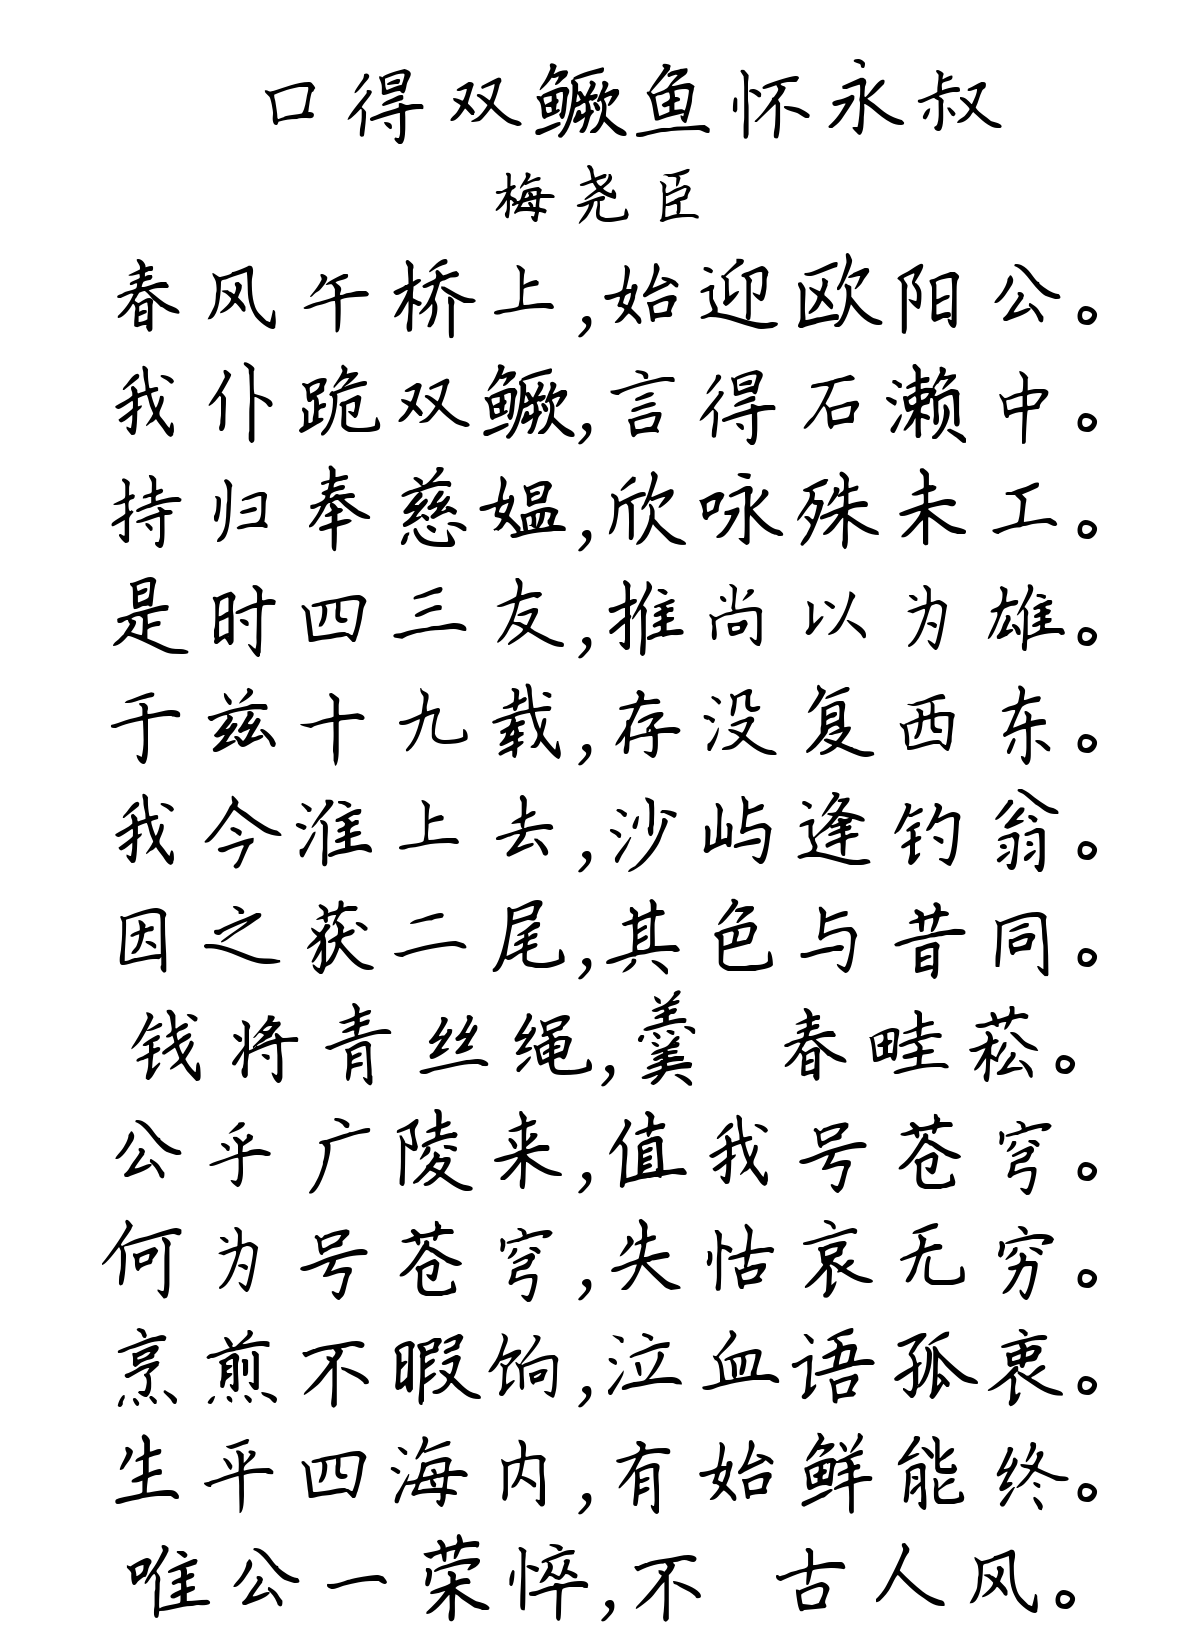 口得双鳜鱼怀永叔
梅尧臣
春风午桥上,始迎欧阳公。
我仆跪双鳜,言得石濑中。
持归奉慈媪,欣咏殊未工。
是时四三友,推尚以为雄。
于兹十九载,存没复西东。
我今淮上去,沙屿逢钓翁。
因之获二尾,其色与昔同。
钱将青丝绳,羹 春畦菘。
公乎广陵来,值我号苍穹。
何为号苍穹,失怙哀无穷。
烹煎不暇饷,泣血语孤衷。
生平四海内,有始鲜能终。
唯公一荣悴,不 古人风。